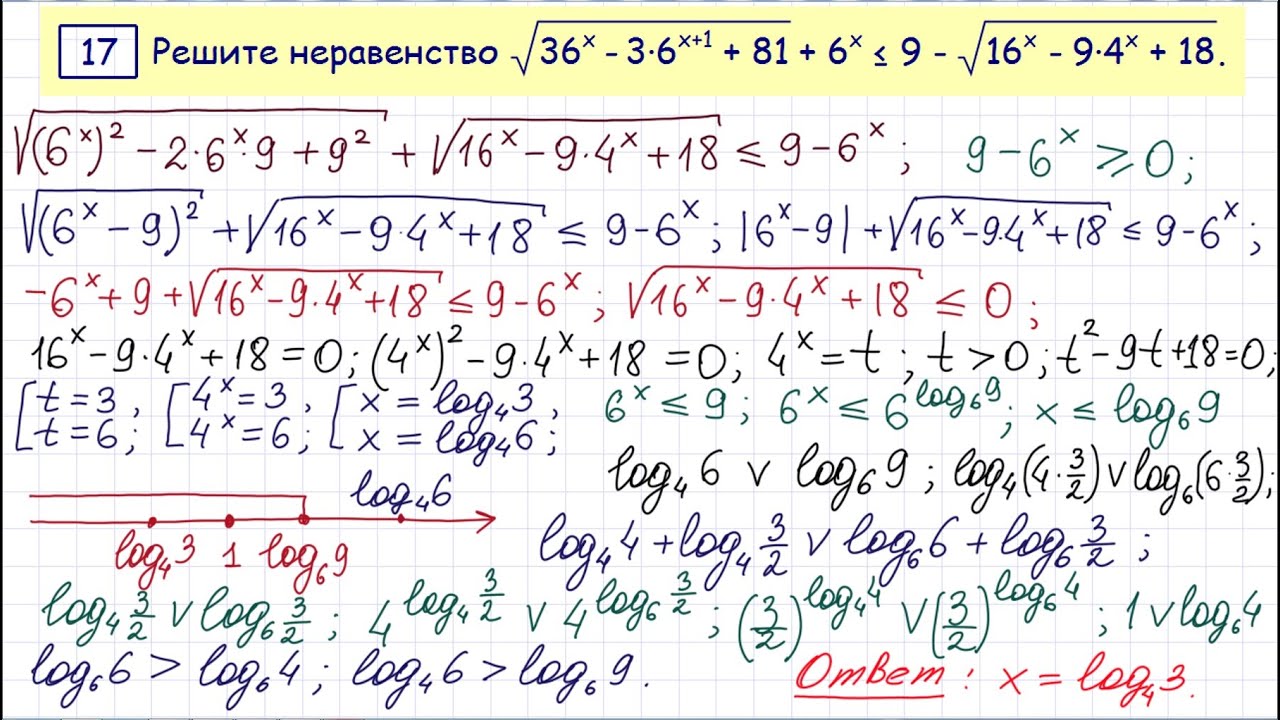 17 Решите неравенство √(36ˣ - 3·6ˣ⁺¹ + 81) + 6ˣ ≤ 9 - √(16ˣ - 9·4ˣ + 18).
√((6ˣ)² - 2·6ˣ·9 + 9²) + √(16ˣ - 9·4ˣ + 18) ≤ 9 - 6ˣ; 9 - 6ˣ ⩾ 0;
√((6ˣ - 9)²) + √(16ˣ - 9·4ˣ + 18) ≤ 9 - 6ˣ; |6ˣ - 9| + √(16ˣ - 9·4ˣ + 18) ≤ 9 - 6ˣ;
-6ˣ + 9 + √(16ˣ - 9·4ˣ + 18) ≤ 9 - 6ˣ; √(16ˣ - 9·4ˣ + 18) ≤ 0;
16ˣ - 9·4ˣ + 18 = 0; (4ˣ)² - 9·4ˣ + 18 = 0; 4ˣ = t; t > 0; t² - 9t + 18 = 0;
[t = 3, [4ˣ = 3, [x = log₄3,
t = 6; 4ˣ = 6; x = log₄6;
6ˣ ≤ 9; 6ˣ ≤ 6^(log₆9); x ≤ log₆9
log₄6 ∨ log₆9; log₄(4·3/2) ∨ log₆(6·3/2);
log₄6
log₄3 1 log₆9
log₄4 + log₄3/2 ∨ log₆6 + log₆3/2;
log₄3/2 ∨ log₆3/2; 4^(log₄3/2) ∨ 4^(log₆3/2); (3/2)^(log₄4) ∨ (3/2)^(log₆4); 1 ∨ log₆4
log₆6 > log₆4; log₄6 > log₆9.
Ответ: x = log₄3.